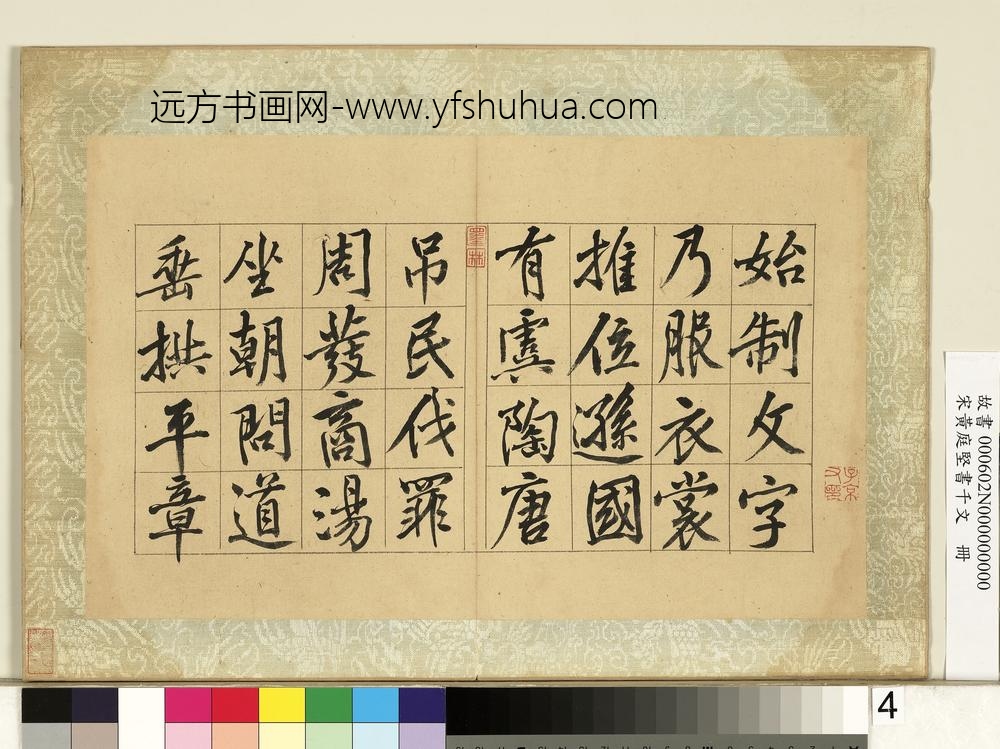 远方书画网-www.yfshuhua.com
始制文字
乃服衣裳
推位遜國
有虞陶唐
吊民伐罪
周發商湯
坐朝問道
垂拱平章
墨林
故書 000602N000000000
宋黃庭堅書千文 冊
4